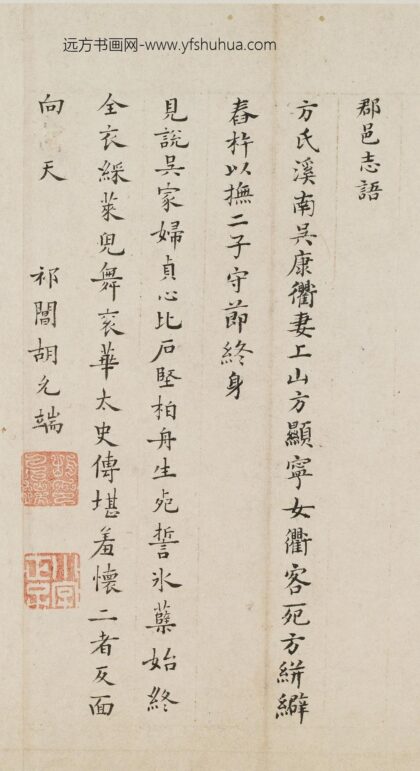 远方书画网-www.yfshuhua.com
郡邑志語
方氏溪南吳康衢妻上山方顯寧女衢客死方絣纑
舂杵以撫二子守節終身
見說吳家婦貞心比石堅柏舟生死誓氷蘗始終
全衣綵萊兒舞袞華太史傳堪羞懷二者反面
向天
祁閶胡允端